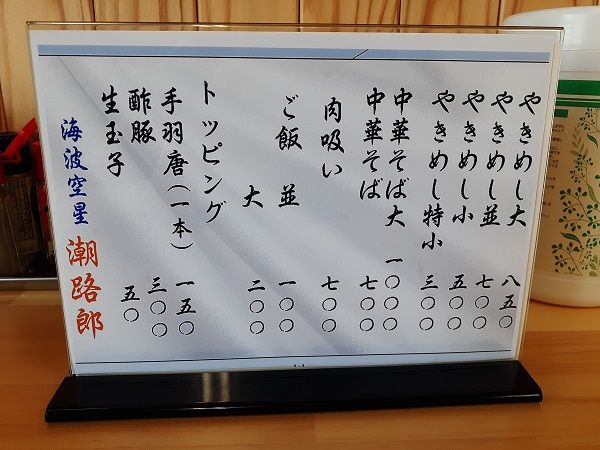 やきめし大 八五〇
やきめし並 七〇〇
やきめし小 五〇〇
やきめし特小 三〇〇
中華そば大 一〇〇〇
中華そば 七〇〇
肉吸い 七〇〇
ご飯 並 一〇〇
大 二〇〇
トッピング
手羽唐(一本) 一五〇
酢豚 三〇〇
生玉子 五〇
海波空星 潮路郎